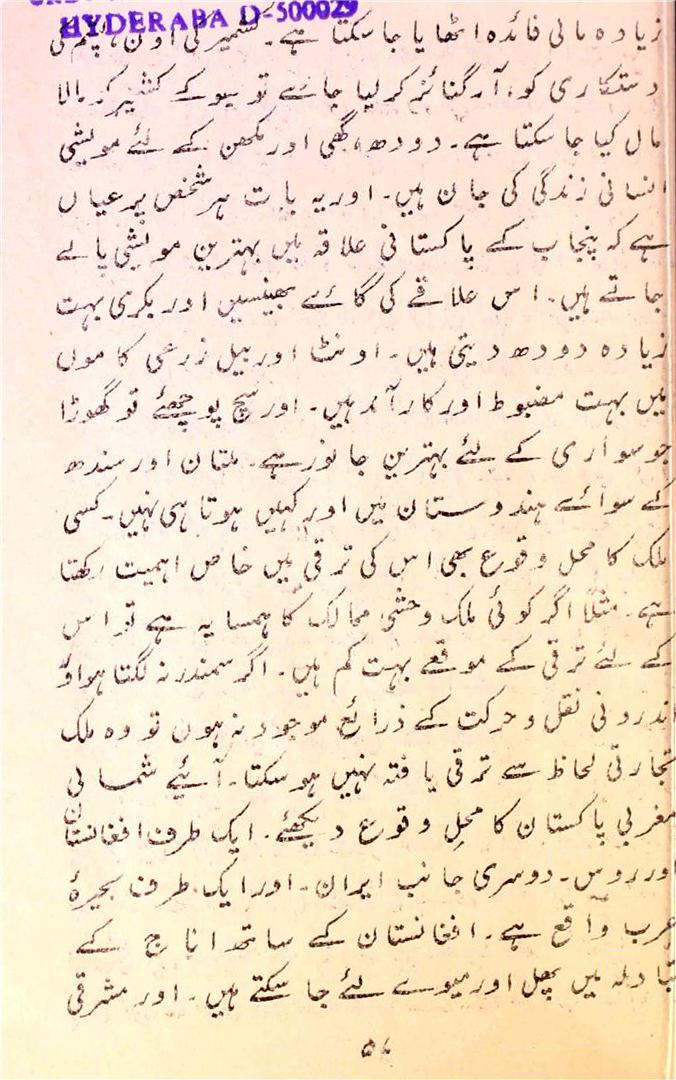 HYDERABA D-500029
زیادہ مالی فائدہ اٹھایا جا سکتا ہے۔ کشمیر کی اون، پشم کی
دستکاری کو، آرگنائز کر لیا جائے تو
مال کیا جا سکتا ہے۔ دودھ، گھی اور مکھن کے لئے مویشی
انسانی زندگی کی جان ہیں۔ اور یہ بات ہر شخص پر عیاں
ہے کہ پنجاب کے پاکستانی علاقہ میں بہترین مویشی پالے
جاتے ہیں۔ اس علاقے کی گائے بھینسیں اور بکری بہت
زیادہ دودھ دیتی ہیں۔ اونٹ اور بیل زرعی کاموں
میں بہت مضبوط اور کارآمد ہیں۔ اور سچ پوچھئے تو گھوڑا
جو سواری کے لئے بہترین جانور ہے۔ ملتان اور سندھ
کے سوائے ہندوستان میں اور کہیں ہوتا ہی نہیں۔ کسی
ملک کا محل وقوع بھی اس کی ترقی میں خاص اہمیت رکھتا
ہے۔ مثلاً اگر کوئی ملک وحشی ممالک کا ہمسایہ ہے تو اس
کے لئے ترقی کے موقعے بہت کم ہیں۔ اگر سمندر نہ لگتا ہو اور
اندرونی نقل و حرکت کے ذرائع موجود نہ ہوں تو وہ ملک
تجارتی لحاظ سے ترقی یافتہ نہیں ہو سکتا۔ آئیے شمالی
مغربی پاکستان کا محلِ وقوع دیکھئے۔ ایک طرف افغانستان
اور روس۔ دوسری جانب ایران۔ اور ایک طرف بحیرۂ
عرب واقع ہے۔ افغانستان کے ساتھ اناج کے
تبادلہ میں پھل اور میوے لئے جا سکتے ہیں۔ اور مشرقی